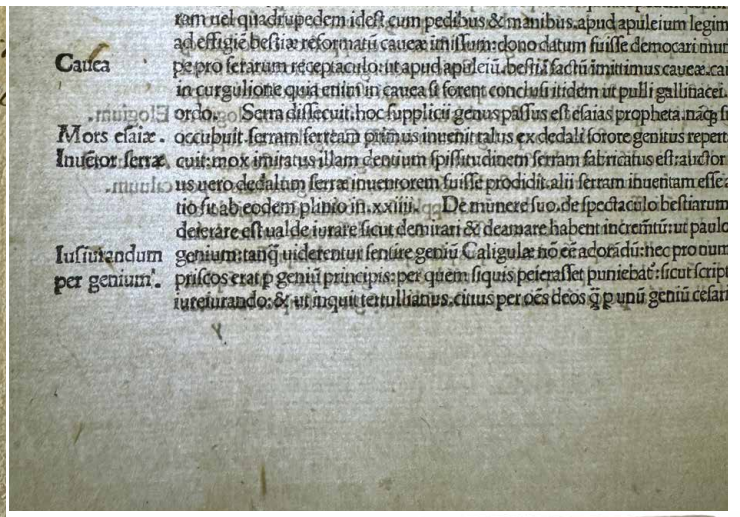 ram uel quadrupedem idest cum pedibus & manibus. apud apuleium legim
ad effigiē bestiæ reformatū caueæ īmissum: dono datum fuisse democari mun
Cauea
pe pro ferarum receptaculo: ut apud apuleiū. bestiā factū imittimus caueæ. cau
in curgulione quia enim in cauea si forent conclusi itidem ut pulli gallinacei.
ordo. Serra dissecuit. hoc supplicii genus passus est esaias propheta. nāqꝫ si
Mors esaiæ.
occubuit. serram ferream primus inuenit talus ex dedali sorore genitus repert
Inuētor serræ
cuit: mox imitatus illam dentium spissitudinem serram fabricatus est: auctor
us uero dedalum serræ inuentorem fuisse prodidit. alii serram inuentam esse a
tio fit ab eodem plinio in. xxiiii. De munere suo. de spectaculo bestiarum
deierare est ualde iurare sicut demirari & deamare habent incremētū: ut paulo
Iusiurandum
genium: tanq̄ uiderentur sentire geniū Caligulæ nō eē adorādū: hec pro num
per genium.
priscos erat p geniū principis: per quem siquis peierasset puniebat̄: sicut script
iureiurando: & ut inquit tertullianus. citius per oēs deos q̄ p unū geniū cesari